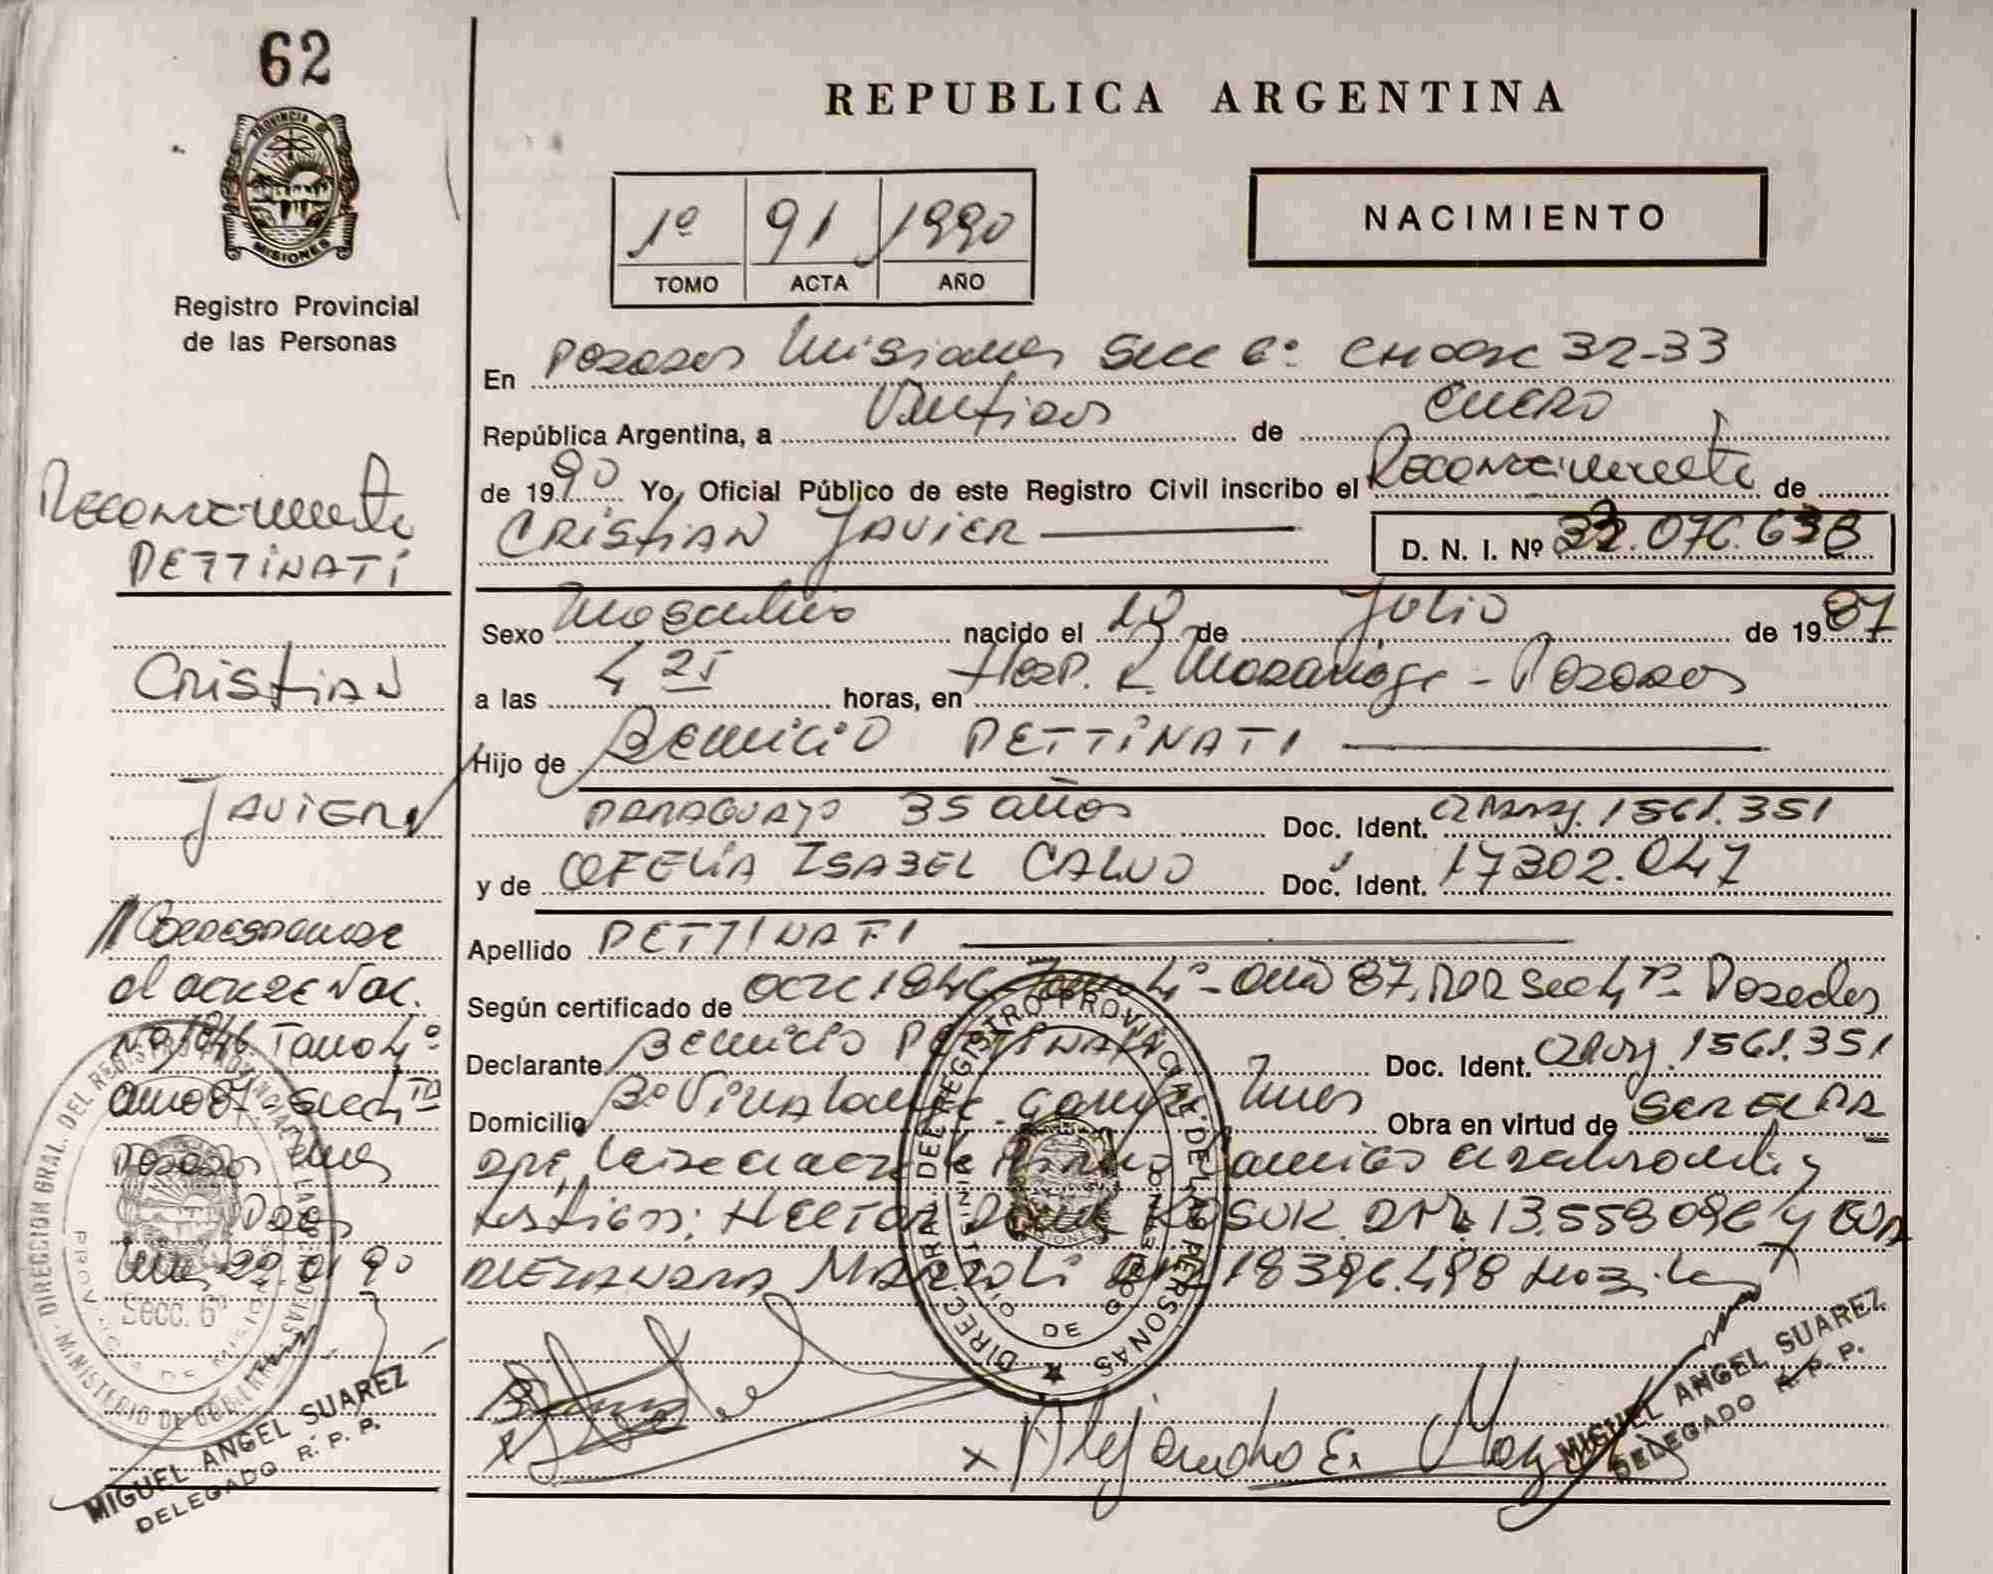 62
PROVINCIA DE
MISIONES
Registro Provincial
de las Personas
REPUBLICA ARGENTINA
1º 91 1990
TOMO ACTA AÑO
NACIMIENTO
En Posadas Misiones Secc 6º 32-33
República Argentina, a Veintidos de Enero
de 1990 Yo, Oficial Público de este Registro Civil inscribo el Reconocimiento de
CRISTIAN JAVIER
D. N. I. Nº 33.076.638
Sexo Masculino nacido el de Julio de 1987
a las 4 25 horas, en Hosp. R. Madariaga - Posadas
Hijo de Benicio PETTINATI
PARAGUAYO 35 años Doc. Ident. 1561.351
y de OFELIA ISABEL CALVO Doc. Ident. 17302.047
Apellido PETTINATI
Según certificado de acta 1846 Tomo 4º - Año 87, Secc 4º Posadas
Declarante Benicio PETTINATI Doc. Ident. 1561.351
Domicilio Bº Obra en virtud de SER EL PA
dre,
testigos: HECTOR KOSUK 13.558.096 y
ALEJANDRA 18396.498
Reconocimiento
PETTINATI
CRISTIAN
JAVIER
Corresponde
al acta de Nac.
Nº 1846 Tomo 4º
año 87 Secc 4º
Posadas Mnes
Pdas
Mnes, 22.01.90
DIRECCION GRAL. DEL REGISTRO PROVINCIAL DE LAS PERSONAS
MINISTERIO DE GOBIERNO
PROVINCIA DE MISIONES
Secc. 6º
DIREC. GRAL. DEL REGISTRO PROVINCIAL DE LAS PERSONAS
MINISTERIO DE GOBIERNO
MISIONES
x Alejandra E.
MIGUEL ANGEL SUAREZ
DELEGADO R. P. P.
MIGUEL ANGEL SUAREZ
DELEGADO R. P. P.